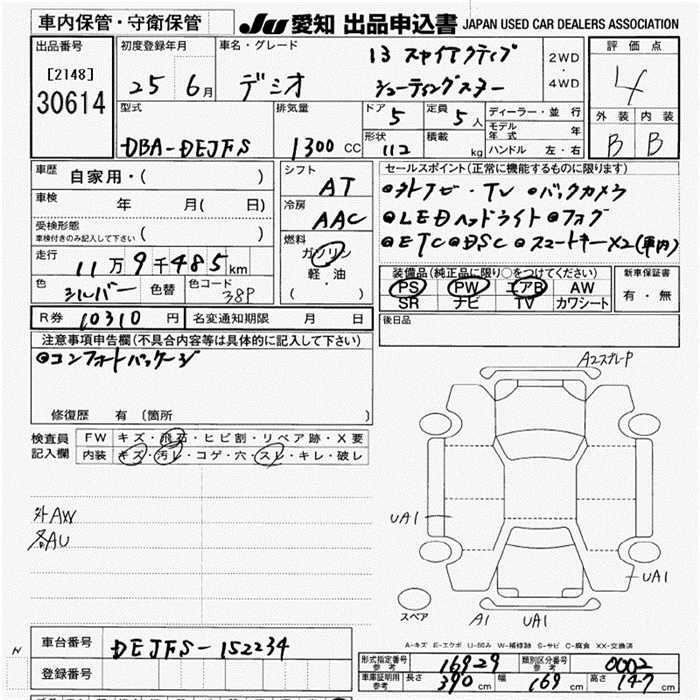 車内保管・守衛保管 JU 愛知 出品申込書 JAPAN USED CAR DEALERS ASSOCIATION
出品番号 [2148] 30614
初度登録年月 25 6月
車名・グレード デミオ 13 スカイアクティブ シューティングスター
2WD・4WD
評価点 4
外装 内装
B B
型式 DBA-DEJFS
排気量 1300 CC
ドア 5 定員 5人
形状 112 積載 kg
ディーラー・並行
モデル年式 年
ハンドル 左・右
車歴 自家用・( )
車検 年 月( 日)
受検形態 車検付きのみ記入して下さい ( )
走行 11万9千485km
色 シルバー 色替 色コード 38P
シフト AT
冷房 AAC
燃料 ガソリン 軽・油 ( )
セールスポイント(正常に機能するものに限ります)
◎外ナビ・TV ◎バックカメラ
◎LEDヘッドライト ◎フォグ
◎ETC ◎DSC ◎スマートキー×2(車内)
装備品(純正品に限り○をつけてください)
PS PW エアB AW
SR ナビ TV カワシート
新車保証書 有・無
R券 10310 円 名変通知期限 月 日
後日品
注意事項申告欄(不具合内容等は具体的に記入して下さい)
◎コンフォートパッケージ
修復歴 有 〔箇所 〕
検査員記入欄 FW キズ・飛石・ヒビ割・リペア跡・X要
内装 キズ・汚レ・コゲ・穴・スレ・キレ・破レ
外AW
各AU
A2スプレーP
UA1
UA1
スペア
A1 UA1
A-キズ E-エクボ U-凹み W-補修跡 S-サビ C-腐食 XX-交換済
N
車台番号 DEJFS-152234
登録番号
形式指定番号 参考 16929 類別区分番号 参考 0002
車庫証明用 参考 長さ 390 cm 幅 169 cm 高さ 147 cm